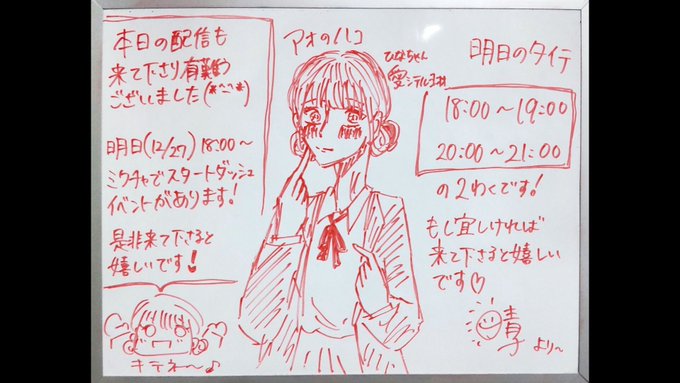 本日の配信も
来て下さり有難う
ございました(*^-^*)
明日(12/27) 18:00～
ミクチャでスタートダッシュ
イベントがあります!
是非来て下さると
嬉しいです!
キテネ～♪
アオのハコ
ひなちゃん
愛シテルヨ
明日のタイテ
18:00～19:00
20:00～21:00
の2わくです!
もし宜しければ
来て下さると嬉しい
です♡
晴子より～